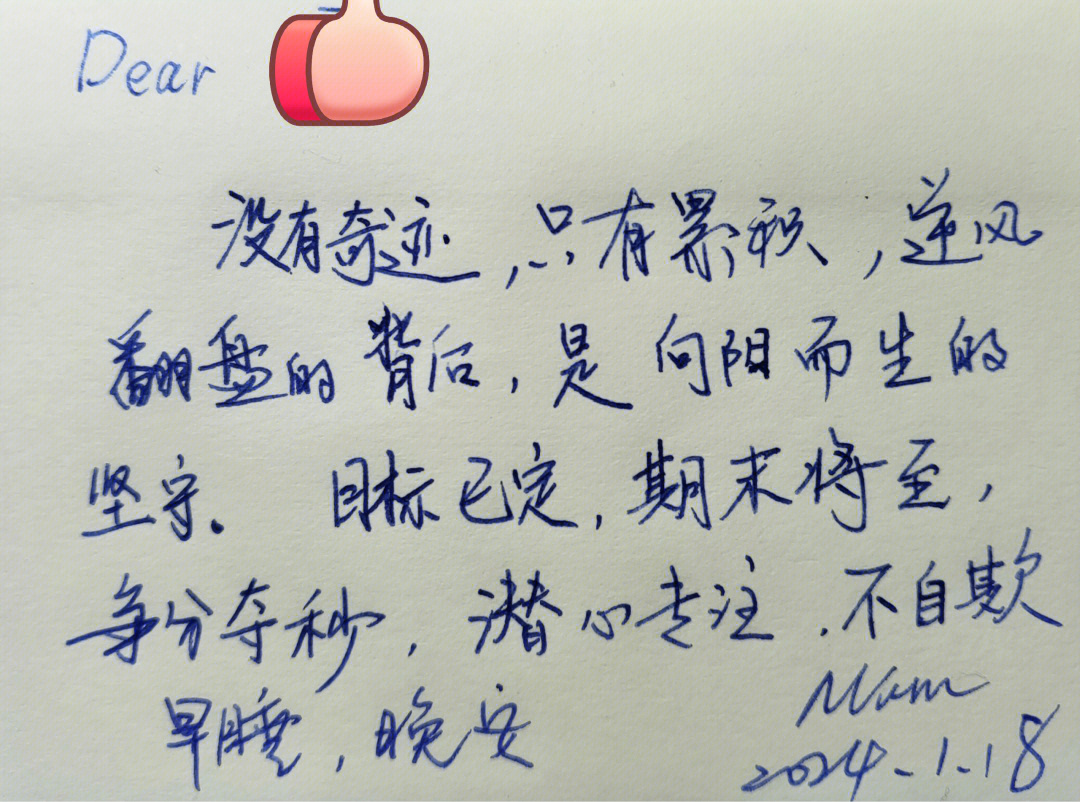 Dear
没有奇迹，只有累积，逆风
翻盘的背后，是向阳而生的
坚守。目标已定，期末将至，
争分夺秒，潜心专注，不自欺
早睡，晚安
Mam
2024.1.18